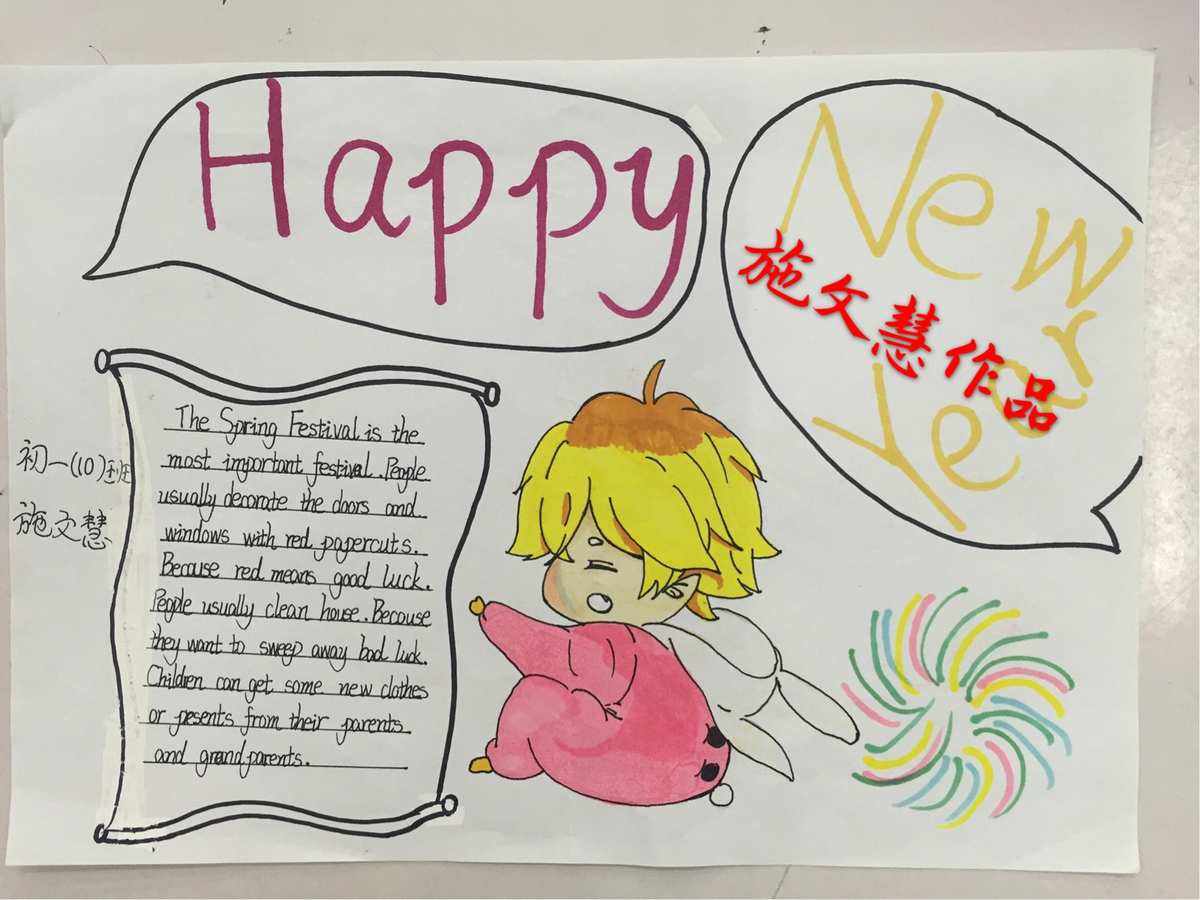 Happy
New
Year
施文慧作品
初一(10)班
施文慧
The Spring Festival is the
most important festival. People
usually decorate the doors and
windows with red papercuts.
Because red means good luck.
People usually clean house. Because
they want to sweep away bad luck.
Children can get some new clothes
or pesents from their parents
and grandparents.